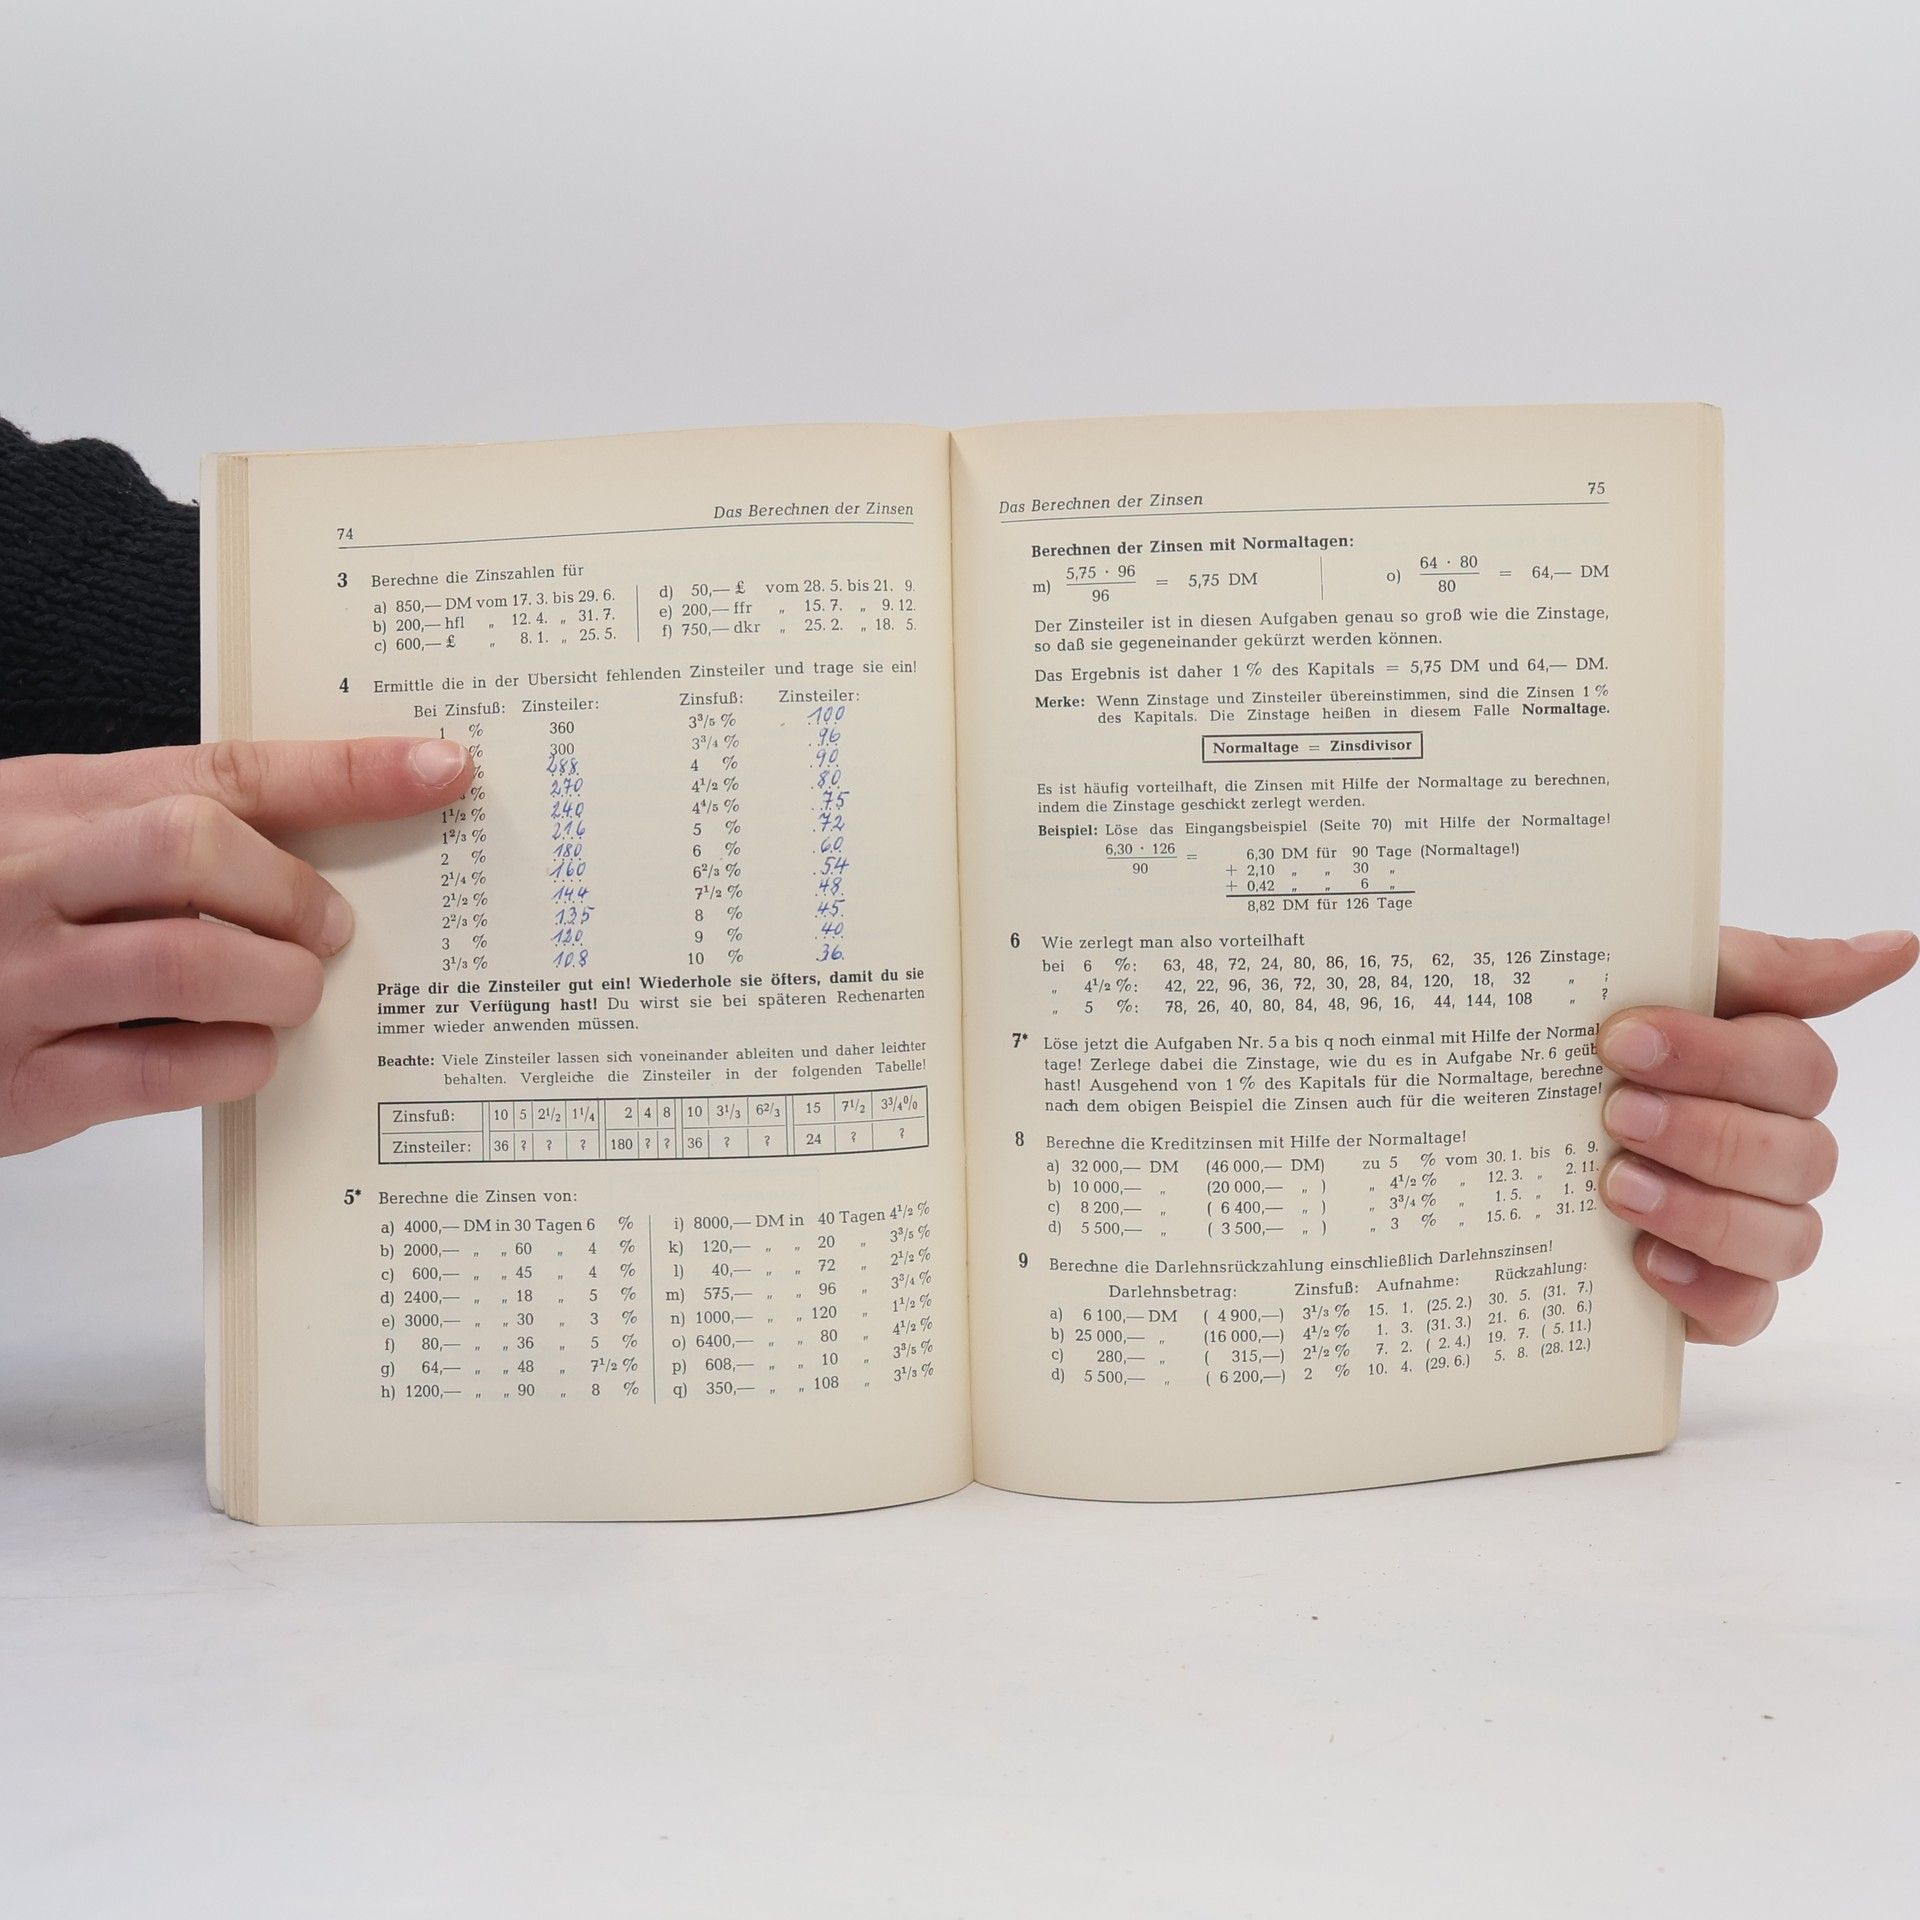 74
Das Berechnen der Zinsen
3 Berechne die Zinszahlen für
a) 850,— DM vom 17. 3. bis 29. 6.
b) 200,— hfl „ 12. 4. „ 31. 7.
c) 600,— £ „ 8. 1. „ 25. 5.
d) 50,— £ vom 28. 5. bis 21. 9.
e) 200,— ffr „ 15. 7. „ 9. 12.
f) 750,— dkr „ 25. 2. „ 18. 5.
4 Ermittle die in der Übersicht fehlenden Zinsteiler und trage sie ein!
Bei Zinsfuß: Zinsteiler: Zinsfuß: Zinsteiler:
1 % 360 3³/₅ % 100
% 300 3³/₄ % 96
% 288 4 % 90
% 270 4¹/₂ % 80
1¹/₂ % 240 4⁴/₅ % 75
1²/₃ % 216 5 % 72
2 % 180 6 % 60
2¹/₄ % 160 6²/₃ % 54
2¹/₂ % 144 7¹/₂ % 48
2²/₃ % 135 8 % 45
3 % 120 9 % 40
3¹/₃ % 108 10 % 36
Präge dir die Zinsteiler gut ein! Wiederhole sie öfters, damit du sie
immer zur Verfügung hast! Du wirst sie bei späteren Rechenarten
immer wieder anwenden müssen.
Beachte: Viele Zinsteiler lassen sich voneinander ableiten und daher leichter
behalten. Vergleiche die Zinsteiler in der folgenden Tabelle!
Zinsfuß: 10 5 2¹/₂ 1¹/₄ 2 4 8 10 3¹/₃ 6²/₃ 15 7¹/₂ 3³/₄⁰/₀
Zinsteiler: 36 ? ? ? 180 ? ? 36 ? ? 24 ? ?
5* Berechne die Zinsen von:
a) 4000,— DM in 30 Tagen 6 %
b) 2000,— „ „ 60 „ 4 %
c) 600,— „ „ 45 „ 4 %
d) 2400,— „ „ 18 „ 5 %
e) 3000,— „ „ 30 „ 3 %
f) 80,— „ „ 36 „ 5 %
g) 64,— „ „ 48 „ 7¹/₂ %
h) 1200,— „ „ 90 „ 8 %
i) 8000,— DM in 40 Tagen 4¹/₂ %
k) 120,— „ „ 20 „ 3³/₅ %
l) 40,— „ „ 72 „ 2¹/₂ %
m) 575,— „ „ 96 „ 3³/₄ %
n) 1000,— „ „ 120 „ 1¹/₂ %
o) 6400,— „ „ 80 „ 4¹/₂ %
p) 608,— „ „ 10 „ 3³/₅ %
q) 350,— „ „ 108 „ 3¹/₃ %
Das Berechnen der Zinsen
75
Berechnen der Zinsen mit Normaltagen:
m) 5,75 · 96 / 96 = 5,75 DM
o) 64 · 80 / 80 = 64,— DM
Der Zinsteiler ist in diesen Aufgaben genau so groß wie die Zinstage,
so daß sie gegeneinander gekürzt werden können.
Das Ergebnis ist daher 1 % des Kapitals = 5,75 DM und 64,— DM.
Merke: Wenn Zinstage und Zinsteiler übereinstimmen, sind die Zinsen 1 %
des Kapitals. Die Zinstage heißen in diesem Falle Normaltage.
Normaltage = Zinsdivisor
Es ist häufig vorteilhaft, die Zinsen mit Hilfe der Normaltage zu berechnen,
indem die Zinstage geschickt zerlegt werden.
Beispiel: Löse das Eingangsbeispiel (Seite 70) mit Hilfe der Normaltage!
6,30 · 126 / 90 = 6,30 DM für 90 Tage (Normaltage!)
+ 2,10 „ „ 30 „
+ 0,42 „ „ 6 „
8,82 DM für 126 Tage
6 Wie zerlegt man also vorteilhaft
bei 6 %: 63, 48, 72, 24, 80, 86, 16, 75, 62, 35, 126 Zinstage;
„ 4¹/₂ %: 42, 22, 96, 36, 72, 30, 28, 84, 120, 18, 32 „ ;
„ 5 %: 78, 26, 40, 80, 84, 48, 96, 16, 44, 144, 108 „ ?
7* Löse jetzt die Aufgaben Nr. 5 a bis q noch einmal mit Hilfe der Normal
tage! Zerlege dabei die Zinstage, wie du es in Aufgabe Nr. 6 geüb
hast! Ausgehend von 1 % des Kapitals für die Normaltage, berechne
nach dem obigen Beispiel die Zinsen auch für die weiteren Zinstage!
8 Berechne die Kreditzinsen mit Hilfe der Normaltage!
a) 32 000,— DM (46 000,— DM) zu 5 % vom 30. 1. bis 6. 9.
b) 10 000,— „ (20 000,— „ ) „ 4¹/₂ % „ 12. 3. „ 2. 11.
c) 8 200,— „ ( 6 400,— „ ) „ 3³/₄ % „ 1. 5. „ 1. 9.
d) 5 500,— „ ( 3 500,— „ ) „ 3 % „ 15. 6. „ 31. 12.
9 Berechne die Darlehnsrückzahlung einschließlich Darlehnszinsen!
Darlehnsbetrag: Zinsfuß: Aufnahme: Rückzahlung:
a) 6 100,— DM ( 4 900,—) 3¹/₃ % 15. 1. (25. 2.) 30. 5. (31. 7.)
b) 25 000,— „ (16 000,—) 4¹/₂ % 1. 3. (31. 3.) 21. 6. (30. 6.)
c) 280,— „ ( 315,—) 2¹/₂ % 7. 2. ( 2. 4.) 19. 7. ( 5. 11.)
d) 5 500,— „ ( 6 200,—) 2 % 10. 4. (29. 6.) 5. 8. (28. 12.)